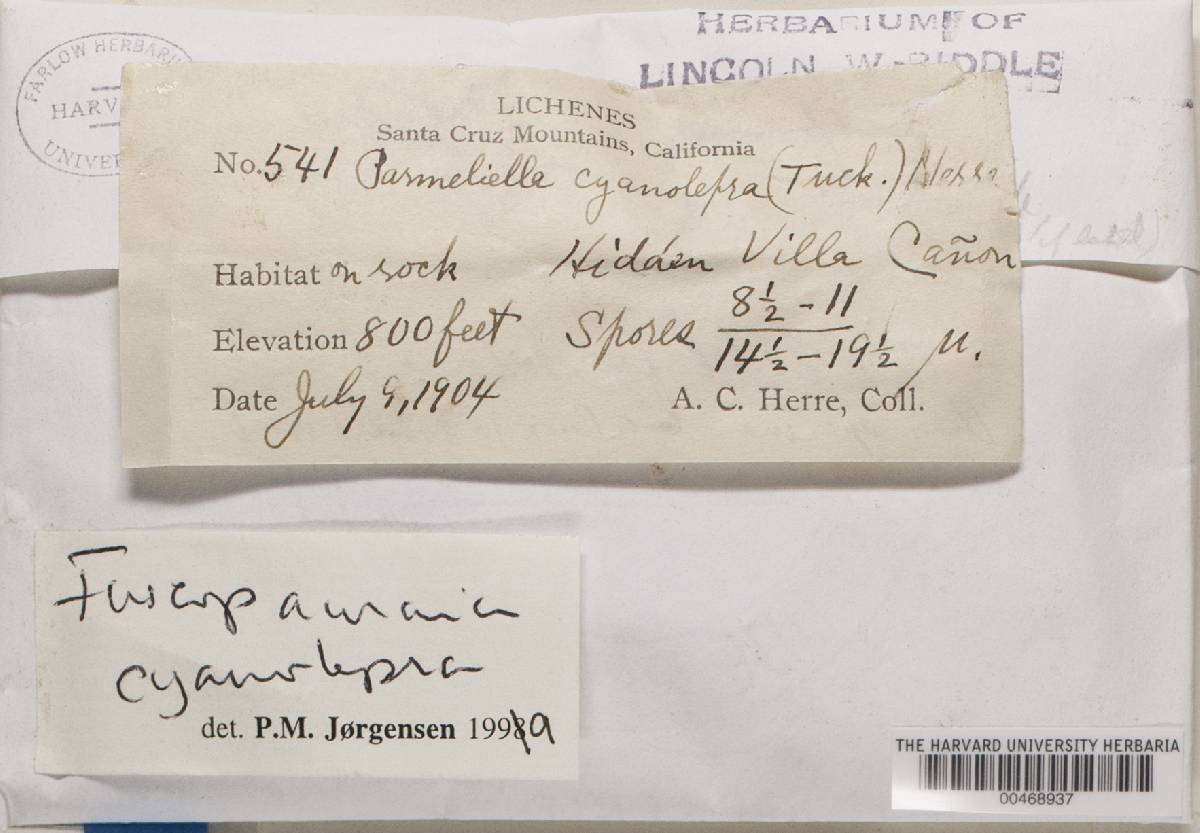 HERBARIUM OF
LINCOLN W. RIDDLE
FARLOW HERBARIU
HARV
UNIVER
LICHENES
Santa Cruz Mountains, California
No. 541 Parmeliella cyanolepra (Tuck.) Herre
Habitat on rock Hidden Villa Cañon
Elevation 800 feet Spores 8½ - 11
14½ - 19½ µ.
Date July 9, 1904 A. C. Herre, Coll.
Fuscopannaria
cyanolepra
det. P.M. Jørgensen 1999
THE HARVARD UNIVERSITY HERBARIA
00468937